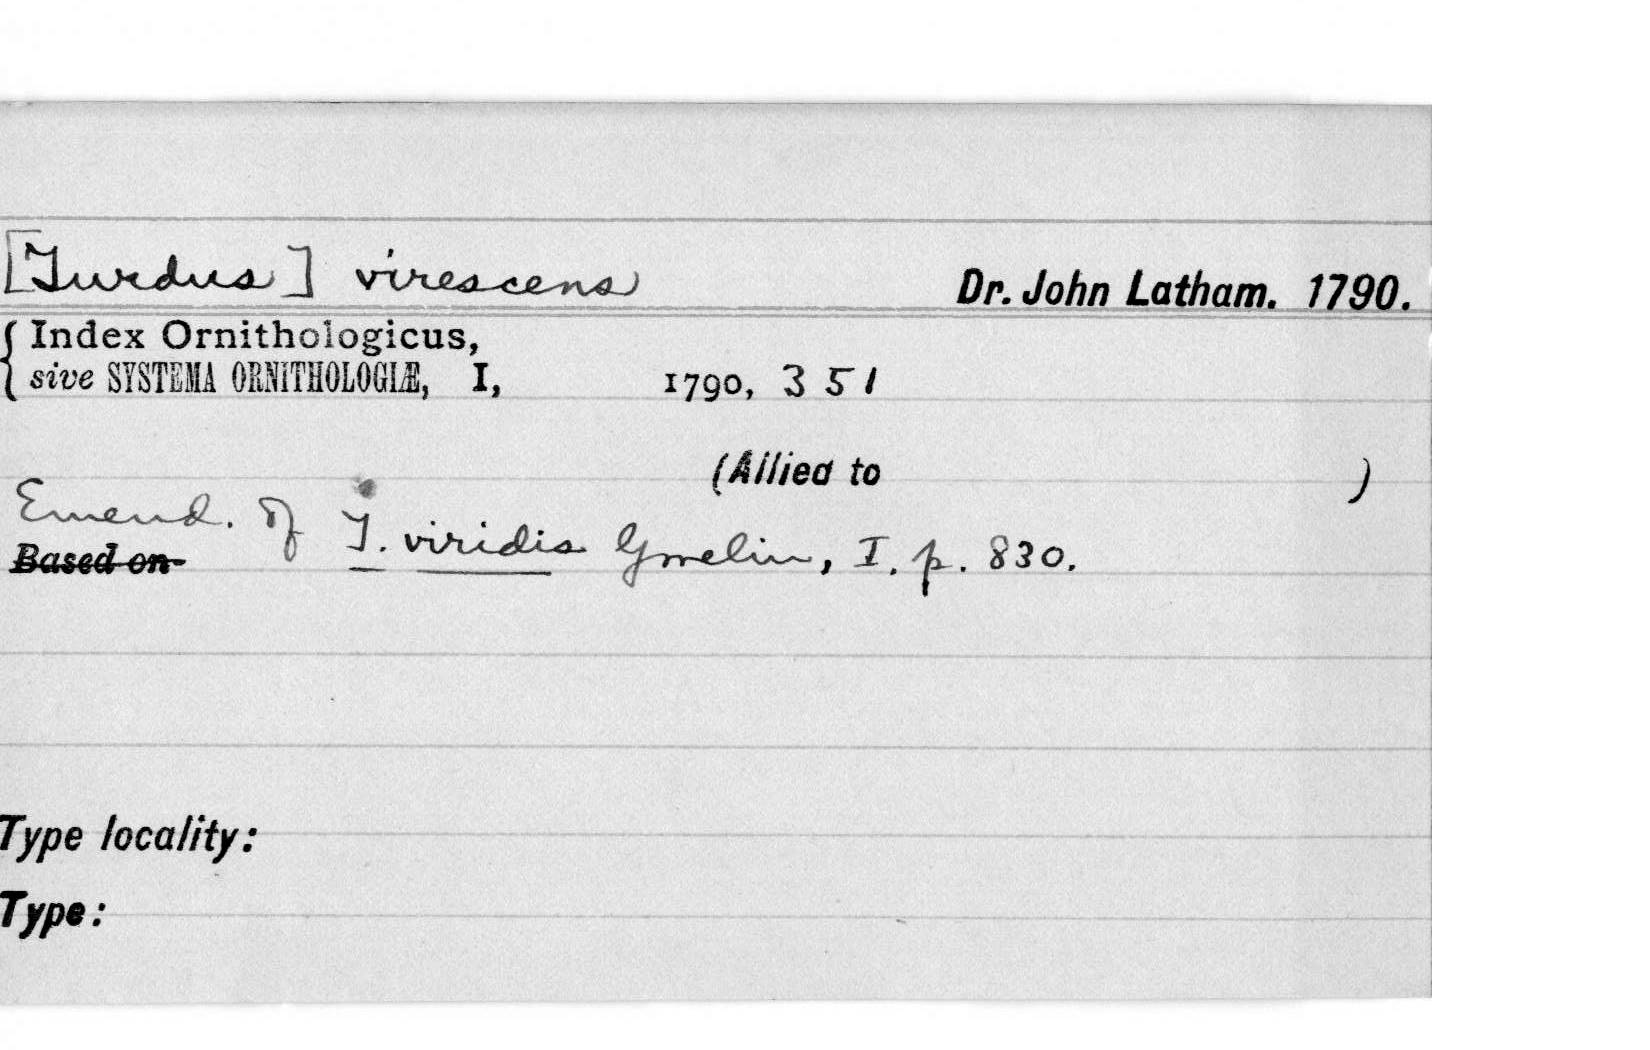 [Turdus] virescens Dr. John Latham. 1790.
Index Ornithologicus,
sive SYSTEMA ORNITHOLOGIÆ, I, 1790, 351
(Allied to )
Emend. of T. viridis Gmelin, I. p. 830.
Based on
Type locality:
Type: